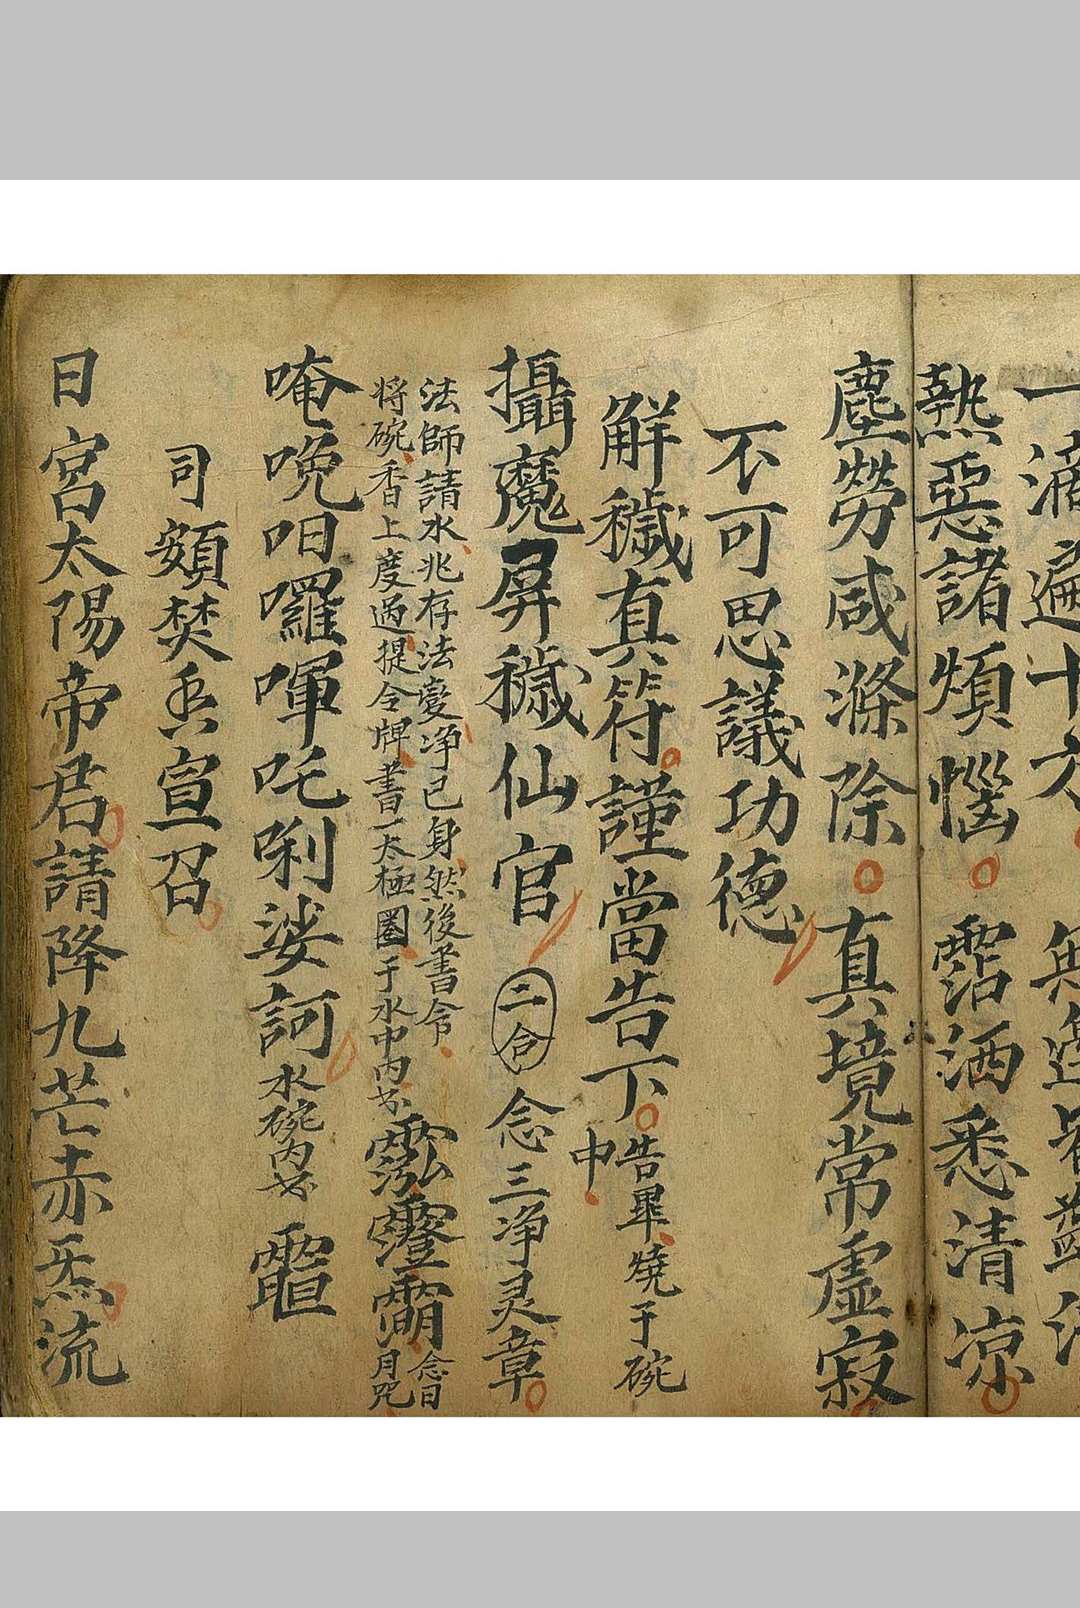 一滴遍十方 無邊
熱惡諸煩惱 霑洒悉清凉
塵勞咸滌除 真境常虛寂
不可思議功德
解穢真符謹當告下 告畢燒于碗
中
攝魔屏穢仙官 二合 念三净灵章
法師請水兆存法變净已身然後書令
将碗香上度過提令牌書一太極圈于水中内 念日
月咒
唵 咱囉喗吒唎娑訶 水碗内
司額焚香宣召
日宮太陽帝君請降九芒赤炁流